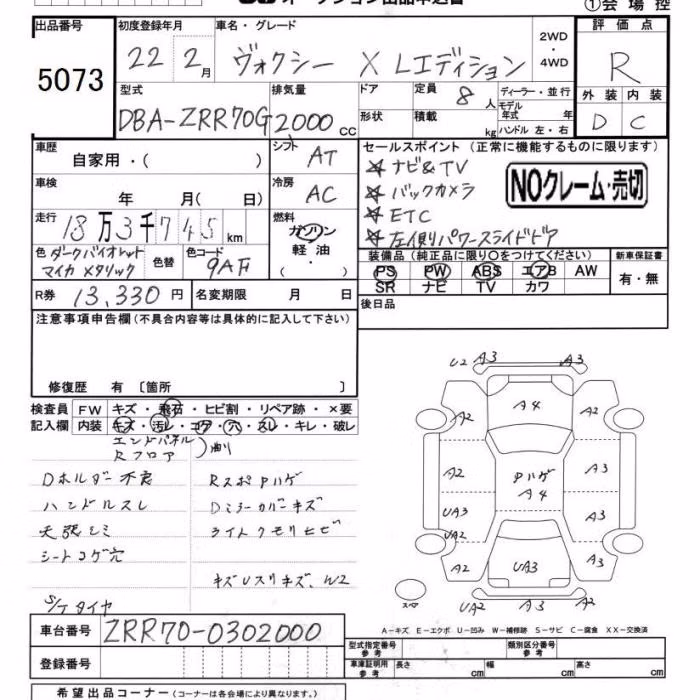 オークション出品申込書
①会場控
出品番号 5073
初度登録年月 22 2月
車名・グレード ヴォクシー X Lエディション
2WD・4WD
評価点 R
外装 D 内装 C
型式 DBA-ZRR70G
排気量 2000 cc
ドア 形状
定員 8人
積載 kg
ディーラー・並行
モデル年式 年
ハンドル 左・右
車歴 自家用・( )
シフト AT
セールスポイント (正常に機能するものに限ります)
☆ ナビ&TV
☆ バックカメラ
☆ ETC
☆ 左側パワースライドドア
NOクレーム・売切
車検 年 月( 日)
冷房 AC
走行 13万3千745km
燃料 ガソリン 軽油 ・( )
色 ダークバイオレットマイカメタリック
色替
色コード 9AF
装備品 (純正品に限り○をつけてください)
PS PW ABS エアB AW
SR ナビ TV カワ
新車保証書 有・無
R券 13,330円
名変期限 月 日
後日品
注意事項申告欄 (不具合内容等は具体的に記入して下さい)
修復歴 有 〔箇所 〕
検査員 FW キズ・飛石・ヒビ割・リペア跡・×要
記入欄 内装 キズ・汚レ・コゲ・穴・スレ・キレ・破レ
エンドパネル
Rフロア
Dホルダー不良 RスポPハゲ
ハンドルスレ Dミラーカバーキズ
天張シミ ライトクモリヒビ
シートコゲ穴
キズUスリキズ、W2
S/Tタイヤ
U2 A3 A3
A2 A4 A2
A2 Pハゲ A4 A3
UA3 A3
UA2
A2 UA3 A2
スペア
A-キズ E-エクボ U-凹み W-補修跡 S-サビ C-腐食 XX-交換済
車台番号 ZRR70-0302000
登録番号
型式指定番号 参考
類別区分番号 参考
車庫証明用 参考 長さ cm 幅 cm 高さ cm
希望出品コーナー (コーナーは各会場により異なります。)